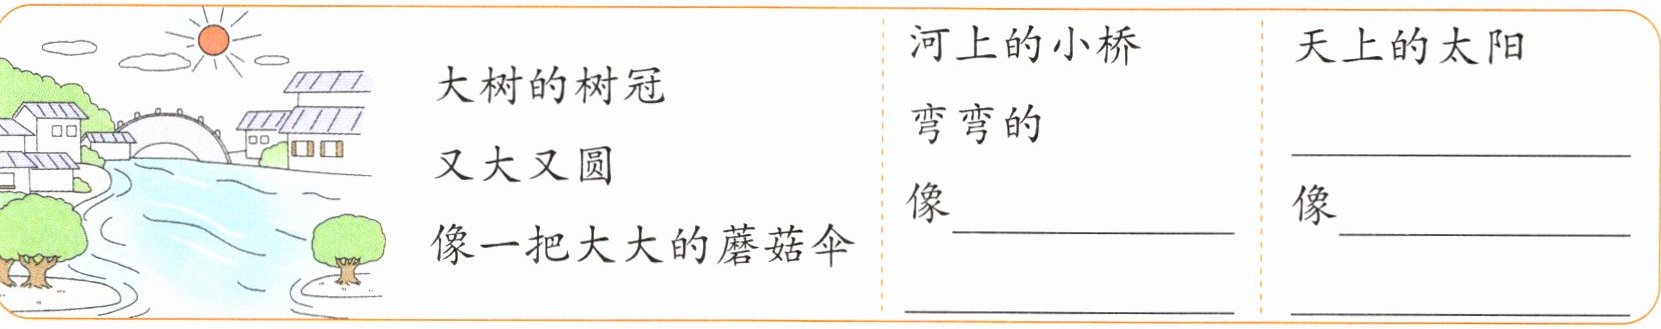 大树的树冠
又大又圆
像一把大大的蘑菇伞
河上的小桥
弯弯的
像
天上的太阳
像